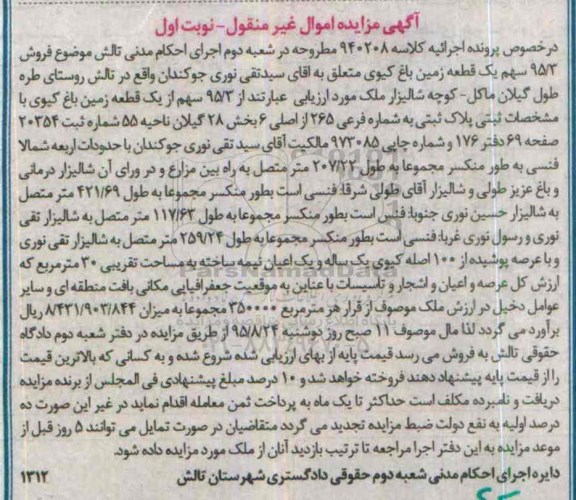 آگهی مزایده اموال غیر منقول - نوبت اول
درخصوص پرونده اجرائیه کلاسه ۹۴۰۲۰۸ مطروحه در شعبه دوم اجرای احکام مدنی تالش موضوع فروش
۹۵/۳ سهم یک قطعه زمین باغ کیوی متعلق به اقای سیدتقی نوری جوکندان واقع در تالش روستای طره
طول گیلان ماکل- کوچه شالیزار ملک مورد ارزیابی عبارتند از ۹۵/۳ سهم از یک قطعه زمین باغ کیوی با
مشخصات ثبتی پلاک ثبتی به شماره فرعی ۲۶۵ از اصلی ۶ بخش ۲۸ گیلان ناحیه ۵۵ شماره ثبت ۲۰۳۵۴
صفحه ۶۹ دفتر ۱۷۶ و شماره چاپی ۹۷۳۰۸۵ مالکیت آقای سید تقی نوری جوکندان با حدودات اربعه شمالا
فنسی به طور منکسر مجموعا به طول ۲۰۷/۲۲ متر متصل به راه بین مزارع و در ورای آن شالیزار درمانی
و باغ عزیز طولی و شالیزار آقای طولی شرقا: فنسی است بطور منکسر مجموعا به طول ۴۲۱/۶۹ متر متصل
به شالیزار حسین نوری جنوبا: فنس است بطور منکسر مجموعا به طول ۱۱۷/۶۲ متر متصل به شالیزار تقی
نوری و رسول نوری غربا: فنسی است بطور منکسر مجموعا به طول ۲۵۹/۲۴ متر متصل به شالیزار تقی نوری
و با عرصه پوشیده از ۱۰۰ اصله کیوی یک ساله و یک اعیان نیمه ساخته به مساحت تقریبی ۳۰ مترمربع که
ارزش کل عرصه و اعیان و اشجار و تاسیسات با عناین به موقعیت جغرافیایی مکانی بافت منطقه ای و سایر
عوامل دخیل در ارزش ملک موصوف از قرار هر مترمربع ۳۵۰۰۰۰ مجموعا به میزان ۸/۴۳۱/۹۰۳/۸۴۴ ریال
برآورد می گردد لذا مال موصوف ۱۱ صبح روز دوشنبه ۹۵/۸/۲۴ از طریق مزایده در دفتر شعبه دوم دادگاه
حقوقی تالش به فروش می رسد قیمت پایه از بهای ارزیابی شده شروع شده و به کسانی که بالاترین قیمت
را از قیمت پایه پیشنهاد دهند فروخته خواهد شد و ۱۰ درصد مبلغ پیشنهادی فی المجلس از برنده مزایده
دریافت و نامبرده مکلف است حداکثر تا یک ماه به پرداخت ثمن معامله اقدام نماید در غیر این صورت ده
درصد اولیه به نفع دولت ضبط مزایده تجدید می گردد متقاضیان در صورت تمایل می توانند ۵ روز قبل از
موعد مزایده به این دفتر اجرا مراجعه تا ترتیب بازدید آنان از ملک مورد مزایده داده شود.
دایره اجرای احکام مدنی شعبه دوم حقوقی دادگستری شهرستان تالش ۱۳۱۲